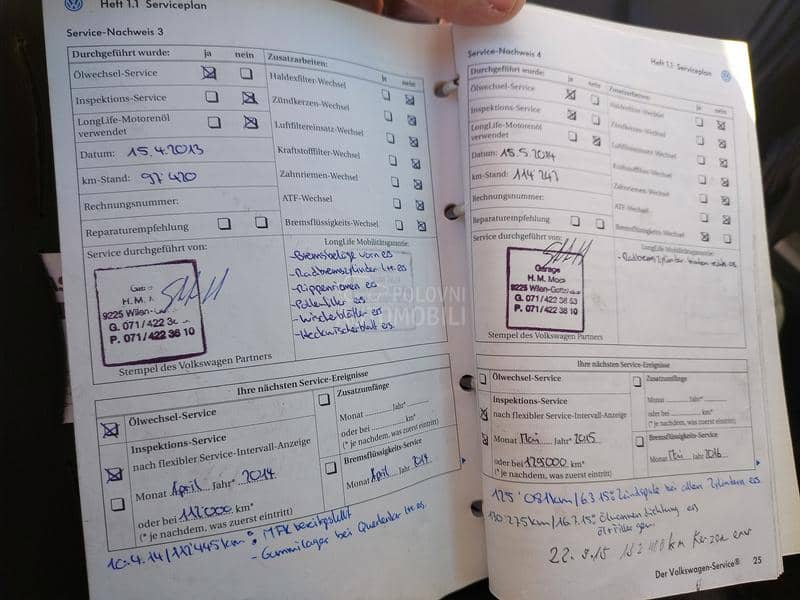 Heft 1.1 Serviceplan
Service-Nachweis 3
Durchgeführt wurde: ja nein
Ölwechsel-Service
Inspektions-Service
LongLife-Motorenöl
verwendet
Datum: 15.4.2013
km-Stand: 97 420
Rechnungsnummer:
Reparaturempfehlung
Service durchgeführt von:
Zusatzarbeiten: ja nein
Haldexfilter-Wechsel
Zündkerzen-Wechsel
Luftfiltereinsatz-Wechsel
Kraftstofffilter-Wechsel
Zahnriemen-Wechsel
ATF-Wechsel
Bremsflüssigkeits-Wechsel
LongLife Mobilitätsgarantie:
-Bremsbeläge vorn es
-Radbremszylinder es
-Rippenriemen es
-Pollenfilter es
-Wischerblätter es
-Heckwischerblatt es
H. M.
9225 Wilen-
G. 071/422
P. 071/422 36 10
Stempel des Volkswagen Partners
Ihre nächsten Service-Ereignisse
Ölwechsel-Service
Inspektions-Service
nach flexibler Service-Intervall-Anzeige
Monat April Jahr* 2014
oder bei 112000 km*
(* je nachdem, was zuerst eintritt)
Zusatzumfänge
Monat Jahr*
oder bei km*
(* je nachdem, was zuerst eintritt)
Bremsflüssigkeits-Service
Monat April Jahr 2014
10.4.14/112445km: MFK bereitgestellt
-Gummilager bei Querlenker es.
Heft 1.1 Serviceplan
Service-Nachweis 4
Durchgeführt wurde: ja nein
Ölwechsel-Service
Inspektions-Service
LongLife-Motorenöl
verwendet
Datum: 15.5.2014
km-Stand: 114 242
Rechnungsnummer:
Reparaturempfehlung
Service durchgeführt von:
Zusatzarbeiten: ja nein
Haldexfilter-Wechsel
Zündkerzen-Wechsel
Luftfiltereinsatz-Wechsel
Kraftstofffilter-Wechsel
Zahnriemen-Wechsel
ATF-Wechsel
Bremsflüssigkeits-Wechsel
LongLife Mobilitätsgarantie:
-Radbremszylinder hinten es
Garage
H. M.
9225 Wilen-
G. 071/422 36 63
P. 071/422 36 10
Stempel des Volkswagen Partners
Ihre nächsten Service-Ereignisse
Ölwechsel-Service
Inspektions-Service
nach flexibler Service-Intervall-Anzeige
Monat Mai Jahr* 2015
oder bei 129000 km*
(* je nachdem, was zuerst eintritt)
Zusatzumfänge
Monat Jahr*
oder bei km*
(* je nachdem, was zuerst eintritt)
Bremsflüssigkeits-Service
Monat Mai Jahr 2016
125'081km/6.3.15: Zündspule bei allen Zylindern es
130 275km/16.7.15: Ölwannendichtung es
22.9.15 km Kerzen
Der Volkswagen-Service® 25
POLOVNI
AUTOMOBILI